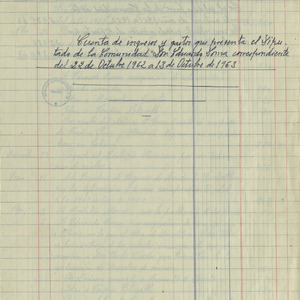 Cuenta de ingresos y gastos que presenta el Dipu-
tado de la Comunidad Don Eduardo Soria correspondiente
del 22 de Octubre 1962 a 13 de Octubre de 1963